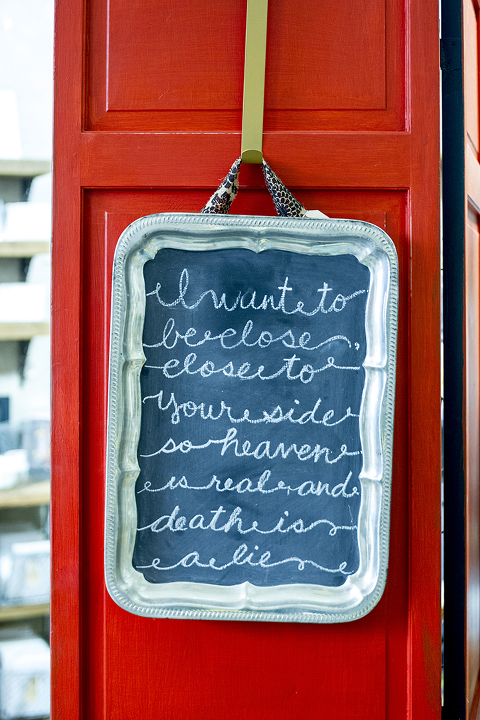 I want to
be close,
close to
your side
so heaven
is real and
death is
a lie